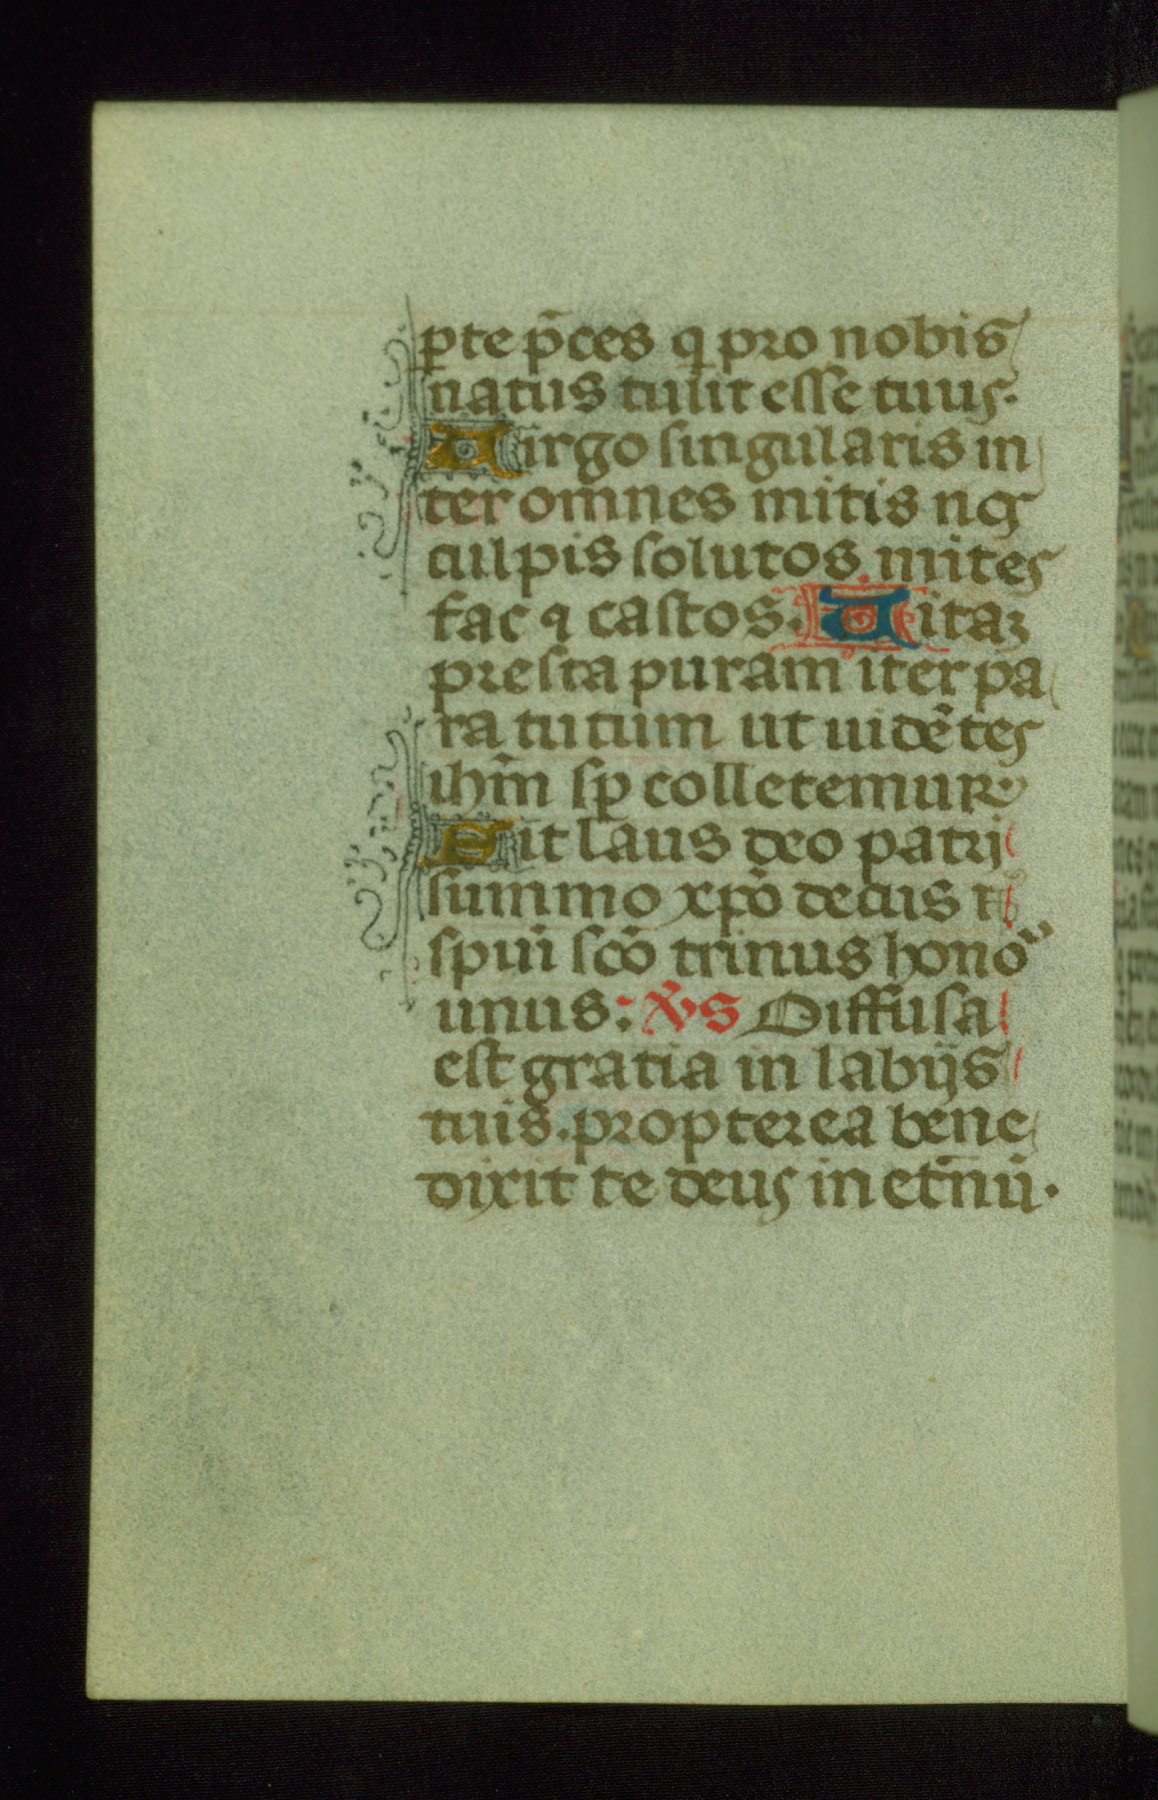 ꝑte p̄ces q̇ pro nobis
natus tulit esse tuus.
Uirgo singularis in
ter om̄nes mitis nos
culpis solutos mites
fac ⁊ castos. Uitaʒ
presta puram iter pa
ra tutum ut uidētes
ih̄m sp̄ colletemur.
Sit laus deo patri
summo xp̄o decus ⁊
spūi sc̄o trinus hono
unus: V̄s Diffusa
est gratia in labijs
tuis. propterea bene
dixit te deus in et̄nū.